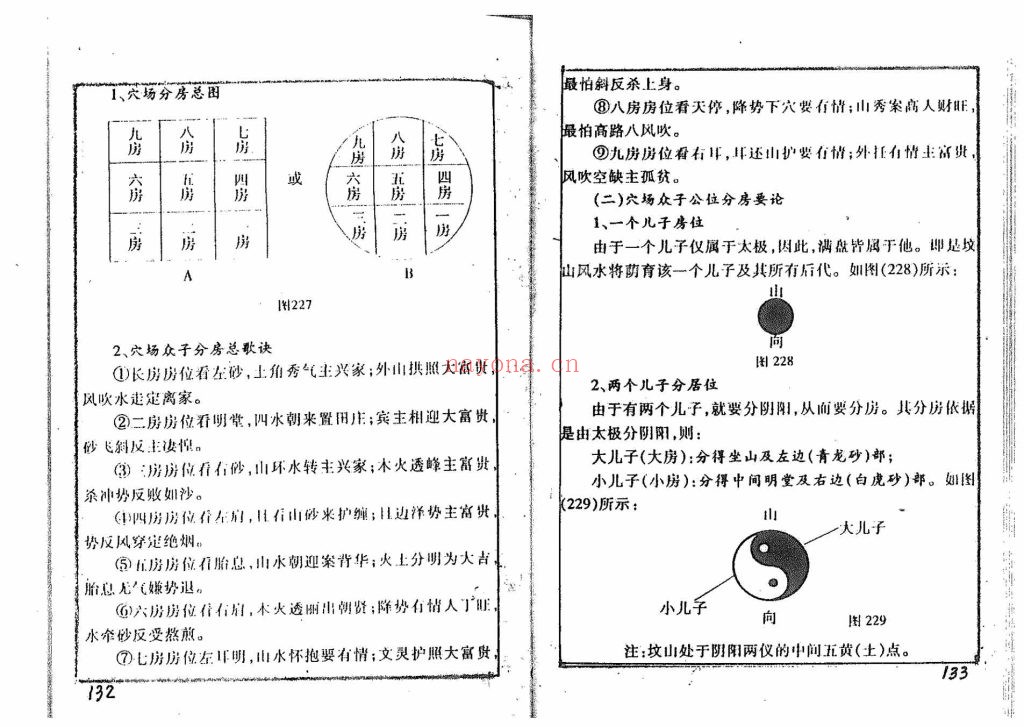 1、穴场分房总图
九房 八房 七房
六房 五房 四房
三房 二房 房
A
或
九房 八房 七房
六房 五房 四房
三房 二房 一房
B
图227
2、穴场众子分房总歌诀
①长房房位看左砂,土角秀气主兴家;外山拱照大富贵,
风吹水走定离家。
②二房房位看明堂,四水朝来置田庄;宾主相迎大富贵,
砂飞斜反主凄惶。
③三房房位看右砂,山环水转主兴家;木火透峰主富贵,
杀冲势反败如沙。
④四房房位看左肩,且看山砂来护缠;且边泽势主富贵,
势反风穿定绝烟。
⑤五房房位看胎息,山水朝迎案背华;火土分明为大吉
胎息无气嫌势退。
⑥六房房位看右肩,木火透丽出朝贤;降势有情人丁旺,
水牵砂反受熬煎。
⑦七房房位左耳明,山水怀抱要有情;文灵护照大富贵,
132
最怕斜反杀上身。
⑧八房房位看天停,降势下穴要有情;山秀案高人财旺,
最怕高路八风吹。
⑨九房房位看右耳,耳还山护要有情;外托有情主富贵,
风吹空缺主孤贫。
(二)穴场众子公位分房要论
1、一个儿子房位
由于一个儿子仅属于太极,因此,满盘皆属于他。即是坟
山风水将荫育该一个儿子及其所有后代。如图(228)所示:
山
向
图 228
2、两个儿子分居位
由于有两个儿子,就要分阴阳,从而要分房。其分房依据
是由太极分阴阳,则:
大儿子(大房):分得坐山及左边(青龙砂)部;
小儿子(小房):分得中间明堂及右边(白虎砂)部。如图
(229)所示:
山
大儿子
小儿子
向
图 229
注:坟山处于阴阳两仪的中间五黄(土)点。
133
nayona.cn